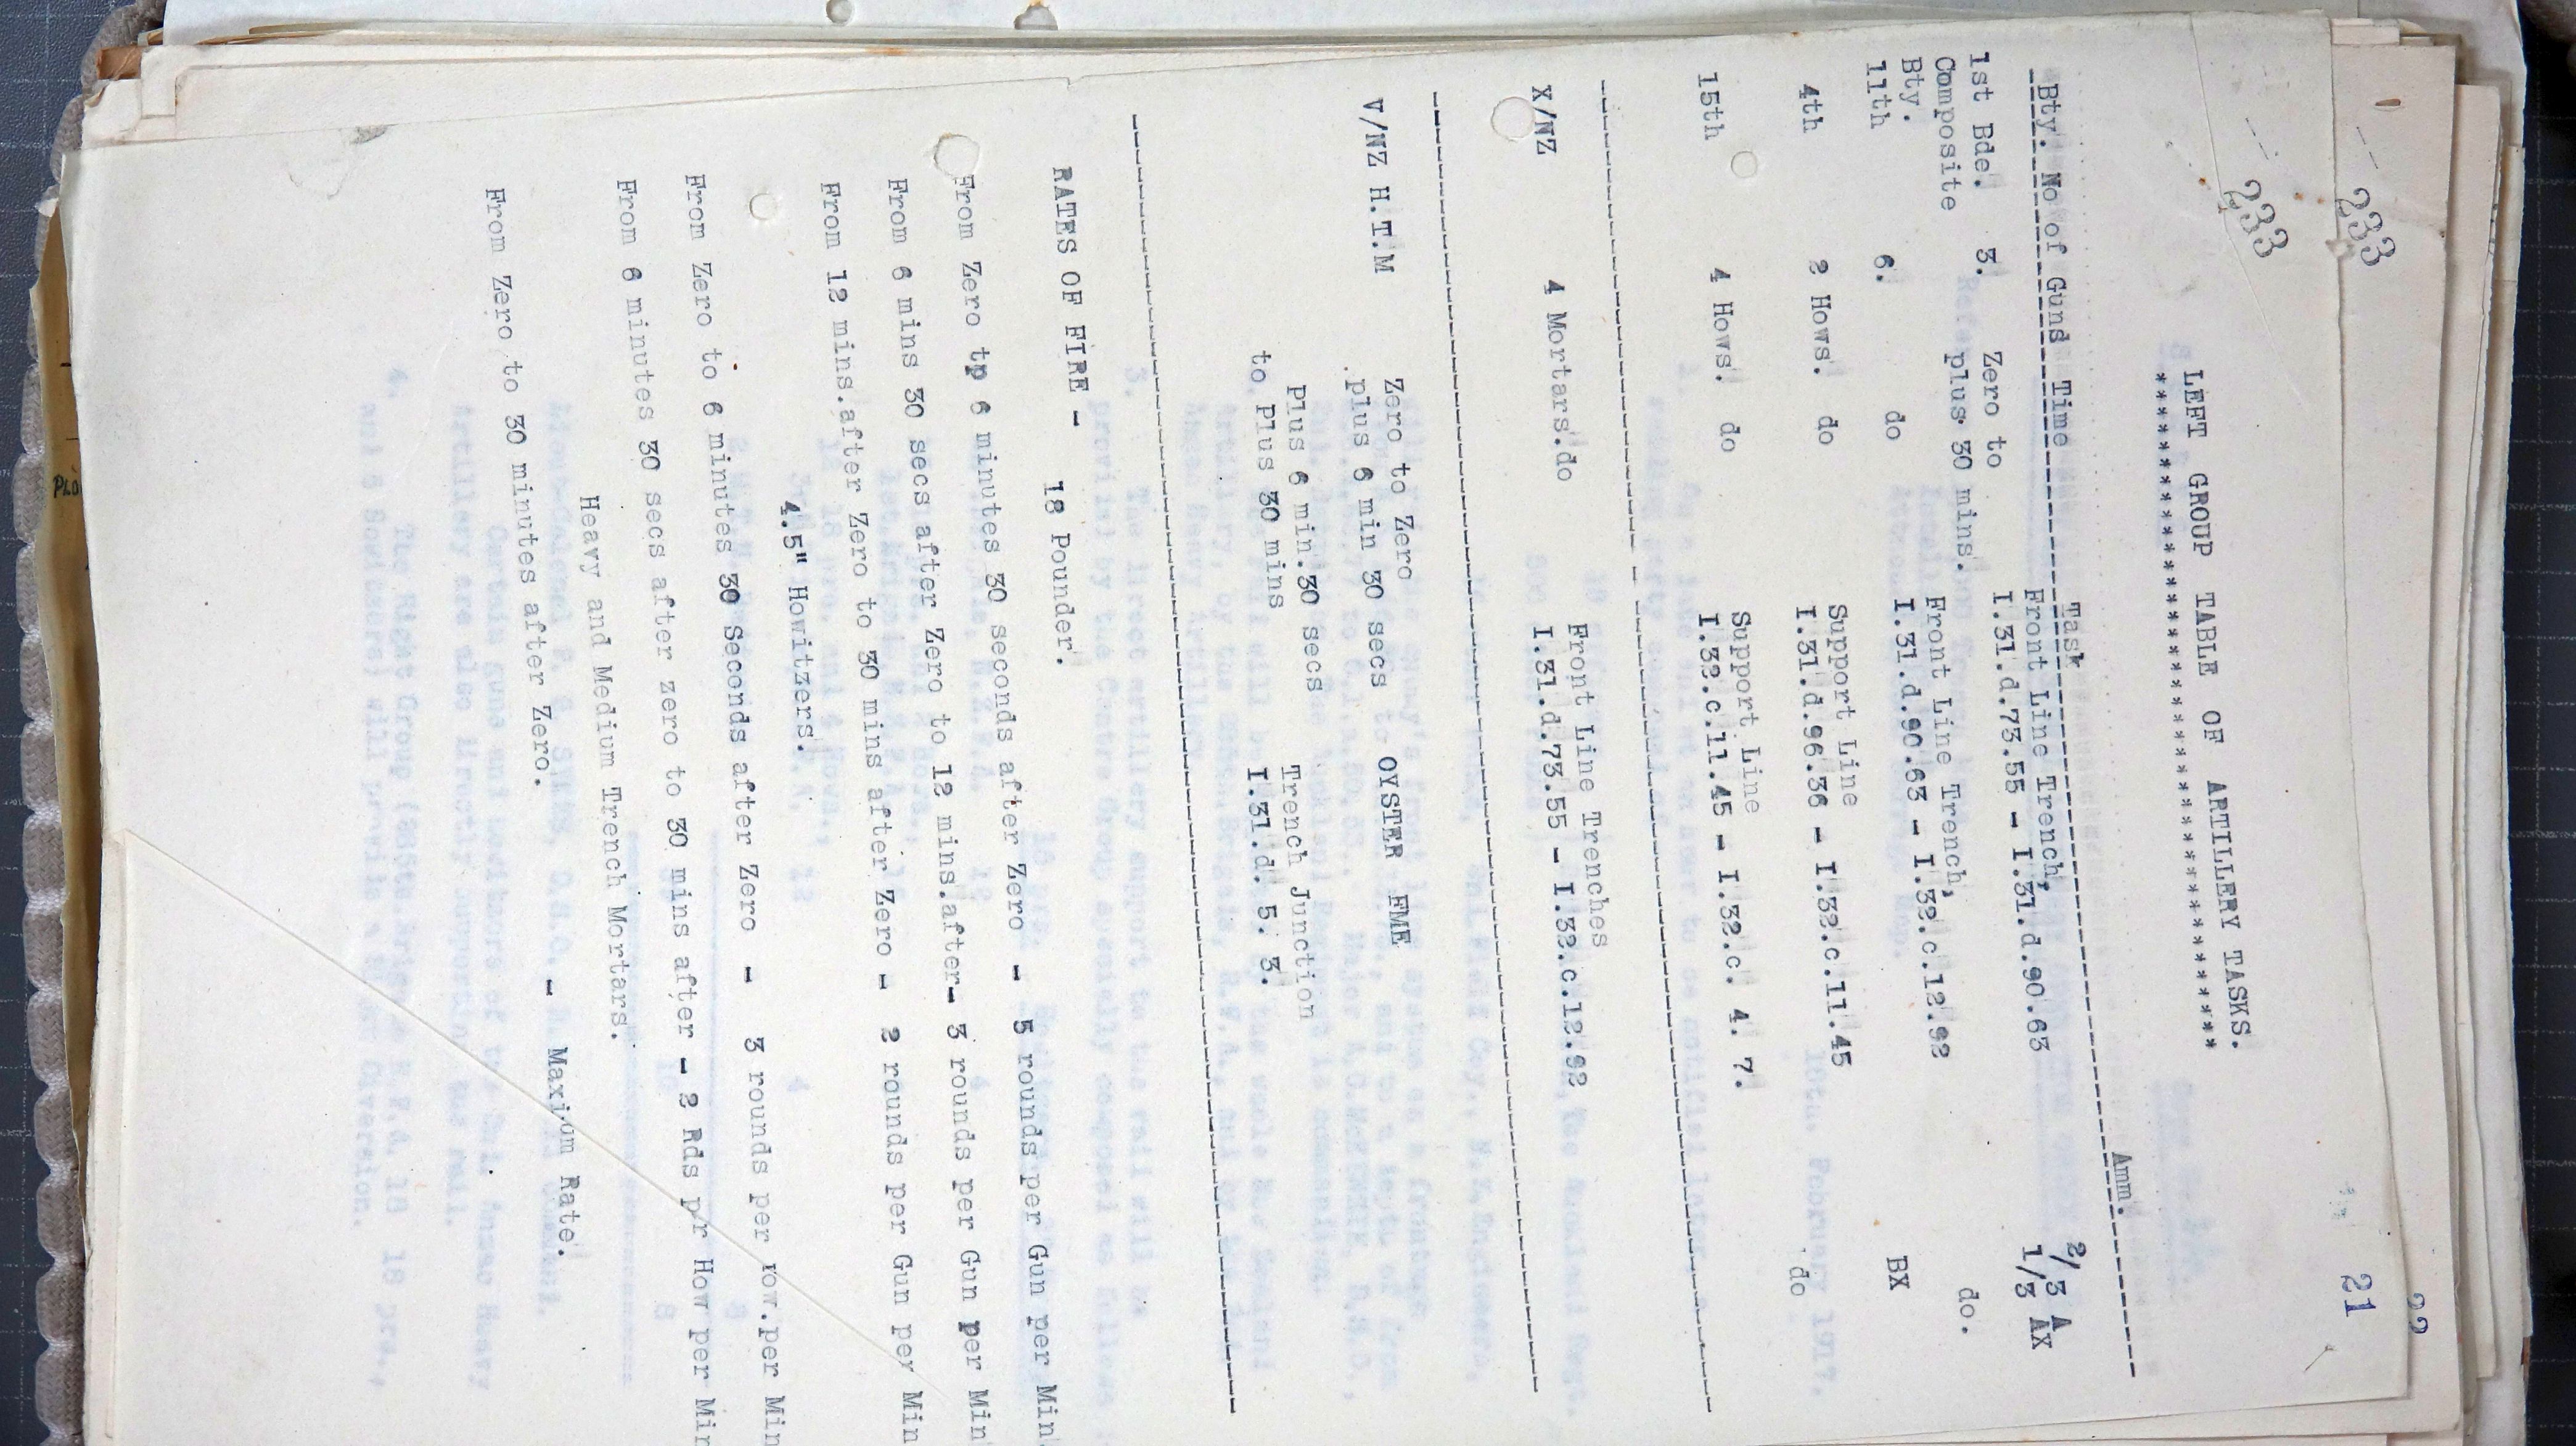 233
233
22
21
LEFT GROUP TABLE OF ARTILLERY TASKS.
************************************
Bty. No of Guns Time Task Amm.
1st Bde. 3. Zero to Front Line Trench, 2/3 A
Composite plus 30 mins. I.31.d.73.55 - I.31.d.90.63 1/3 AX
Bty.
11th 6. do Front Line Trench, do.
I.31.d.90.63 - I.32.c.12.92
4th 2 Hows. do Support Line BX
I.31.d.96.36 - I.32.c.11.45
15th 4 Hows. do Support Line do
I.32.c.11.45 - I.32.c. 4. 7.
X/NZ 4 Mortars.do Front Line Trenches
I.31.d.73.55 - I.32.c.12.92
V/NZ H.T.M Zero to Zero OYSTER FME
plus 6 min 30 secs
Plus 6 min.30 secs Trench Junction
to plus 30 mins I.31.d. 5. 3.
RATES OF FIRE - 18 Pounder.
From Zero tp 6 minutes 30 seconds after Zero - 5 rounds per Gun per Min.
From 6 mins 30 secs after Zero to 12 mins.after- 3 rounds per Gun per Min
From 12 mins.after Zero to 30 mins after Zero - 2 rounds per Gun per Min
4.5" Howitzers.
From Zero to 6 minutes 30 Seconds after Zero - 3 rounds per How.per Min
From 6 minutes 30 secs after zero to 30 mins after - 2 Rds per How per Min
Heavy and Medium Trench Mortars.
From Zero to 30 minutes after Zero. - Maximum Rate.